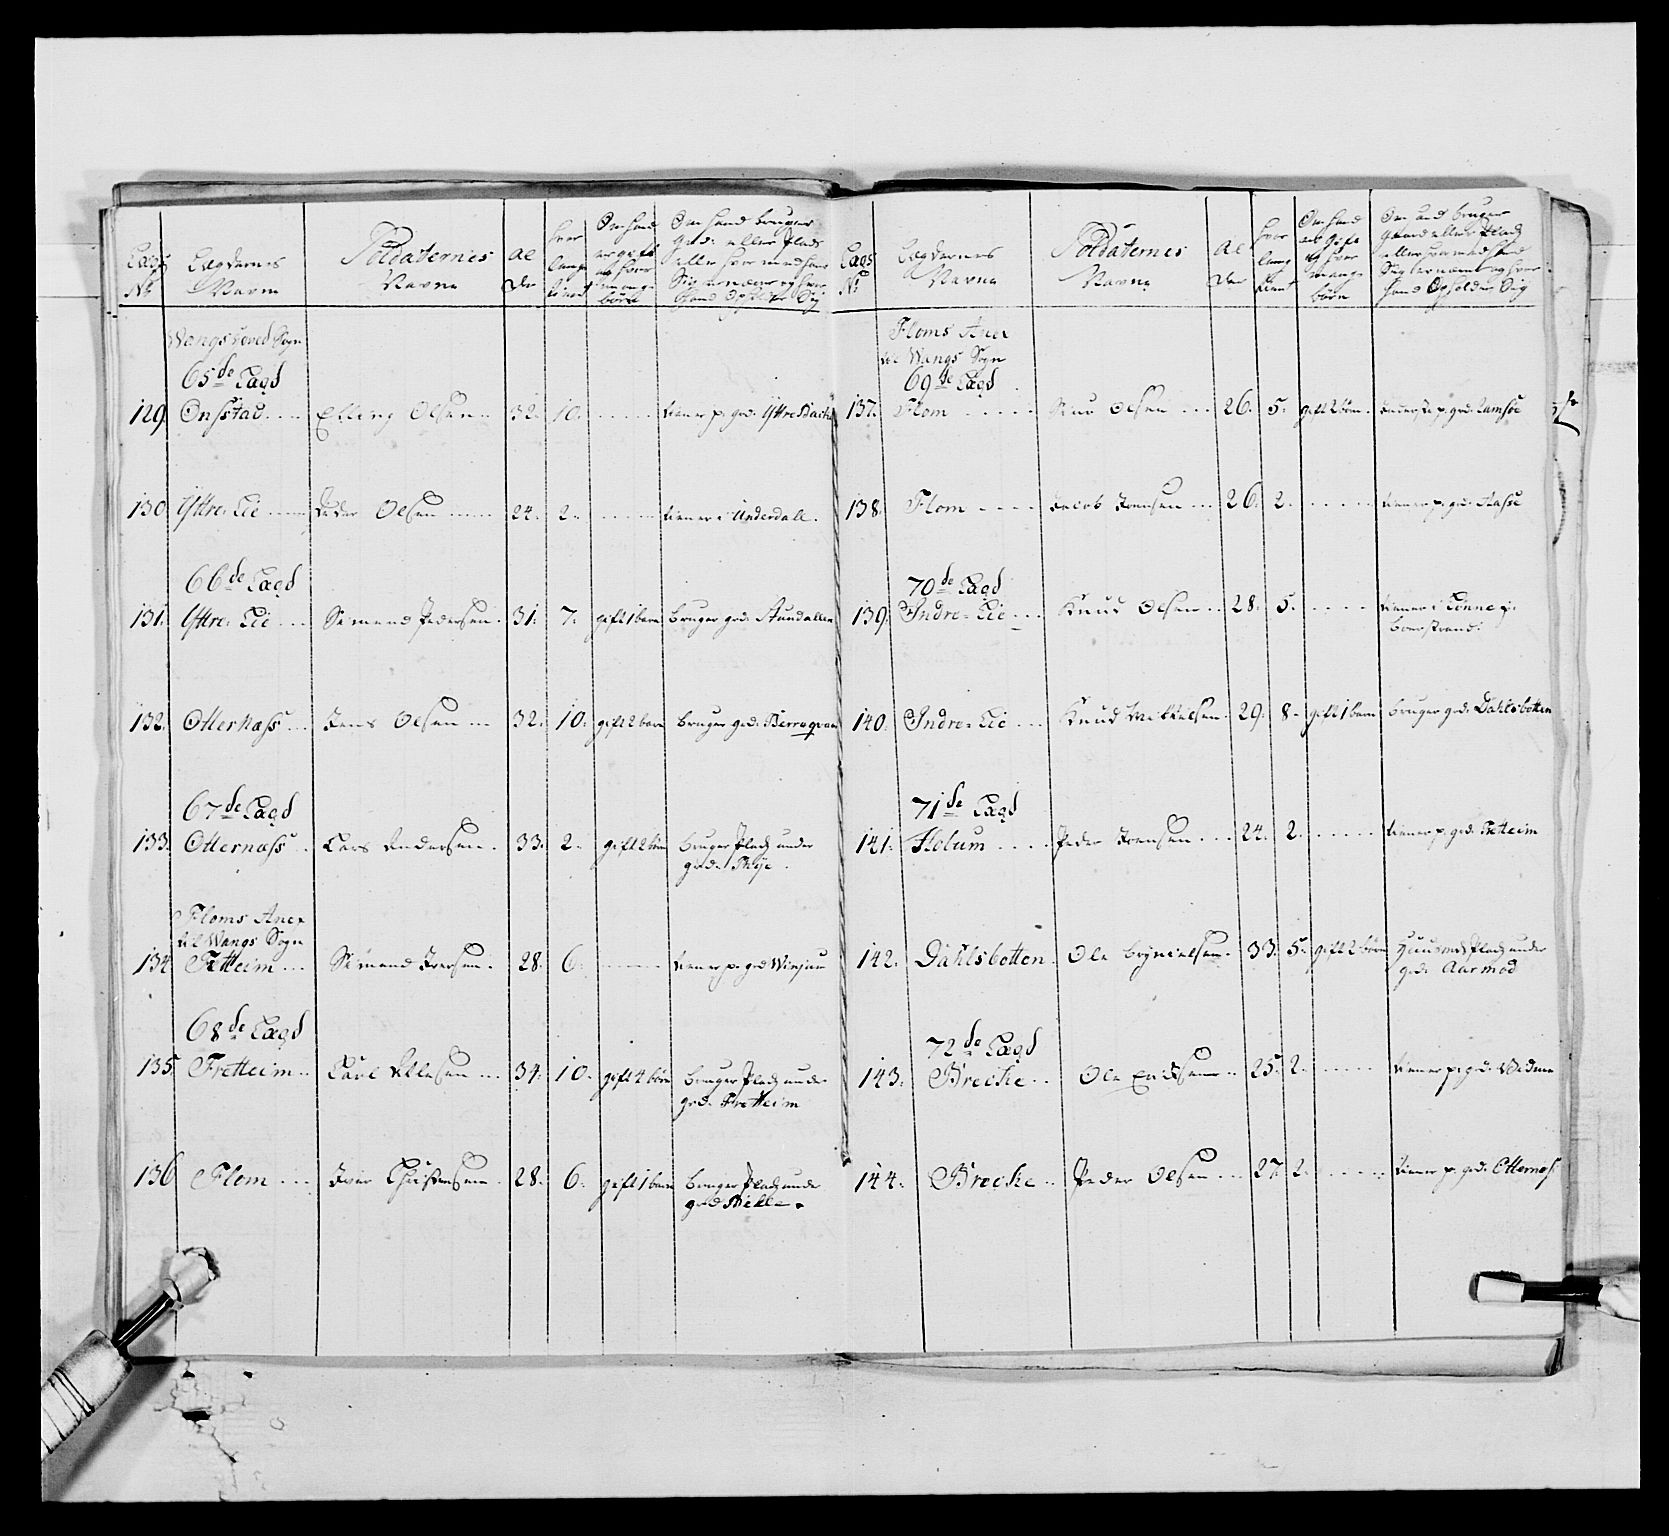 Lægs
No
Lægdernes
Navne
Soldaternes
Navne
Al
der
hvor
længe
tient
Om hand
er gift
og hvor
mange
børn
Om hand bruger
Grd: eller Plads
eller hvor med hand
Sig ernærer og hvor
hand opholder Sig
Wangs hoved Sogn
65de Lægd
129. Onsstad Elling Olsen 32. 10. tiener p: grd:
130. Yttre Lie Peder Olsen 24. 2. tiener i Underdall.
66de Lægd
131. Yttre Lie Simend Pedersen. 31. 7. gift 1 barn bruger grd: Stundallen
132. Otternæss Jens Olsen 32. 10. gift 2 barn bruger grd:
67de Lægd
133. Otternæss Lars Andersen. 33. 2. gift 2 børn bruger Plads under
grd:
Floms Anex
til Wangs Sogn
134. Fretteim Simend Iversen. 28. 6. tiener p: grd Winjum
68de Lægd
135. Fretteim Carl 34. 10. gift 4 børn bruger Plads under
grd: Fretteim
136. Flom Iver Christensen. 28. 6. gift 1 barn bruger Plads under
grd
Lægs
No
Lægdernes
Navne
Soldaternes
Navne
Al
der
hvor
læng
tient
Om hand
er gift
og hvor
mange
børn
Om hand bruger
Gaard eller Plads
eller hvor med hand
Sig ernærer og hvor
hand Opholder Sig
Floms Anex
til Wangs Sogn
69de Lægd
137. Flom Olsen 26. 5. gift 2 børn. p: grd:
138. Flom Jacob Joensen 26. 2. tiener p: grd:
70de Lægd
139. Indre Lie Knud Olsen 28. 5. tiener i
140. Indre Lie Knud Mikkelsen. 29. 8. gift 1 barn bruger grd: Dahlsbotten
71de Lægd
141. Holum Peder Joensen 24. 2. tiener p: grd: Fretteim
142. Dahlsbotten. Ole Brynielsen. 33. 5. gift 2 børn Huusmds Plads under
grd: Aarmod
72de Lægd
143. Brecke Ole Erichsen 25. 2. tiener p: grd:
144. Brecke Peder Olsen 27. 2. tiener p: grd: Otternæss